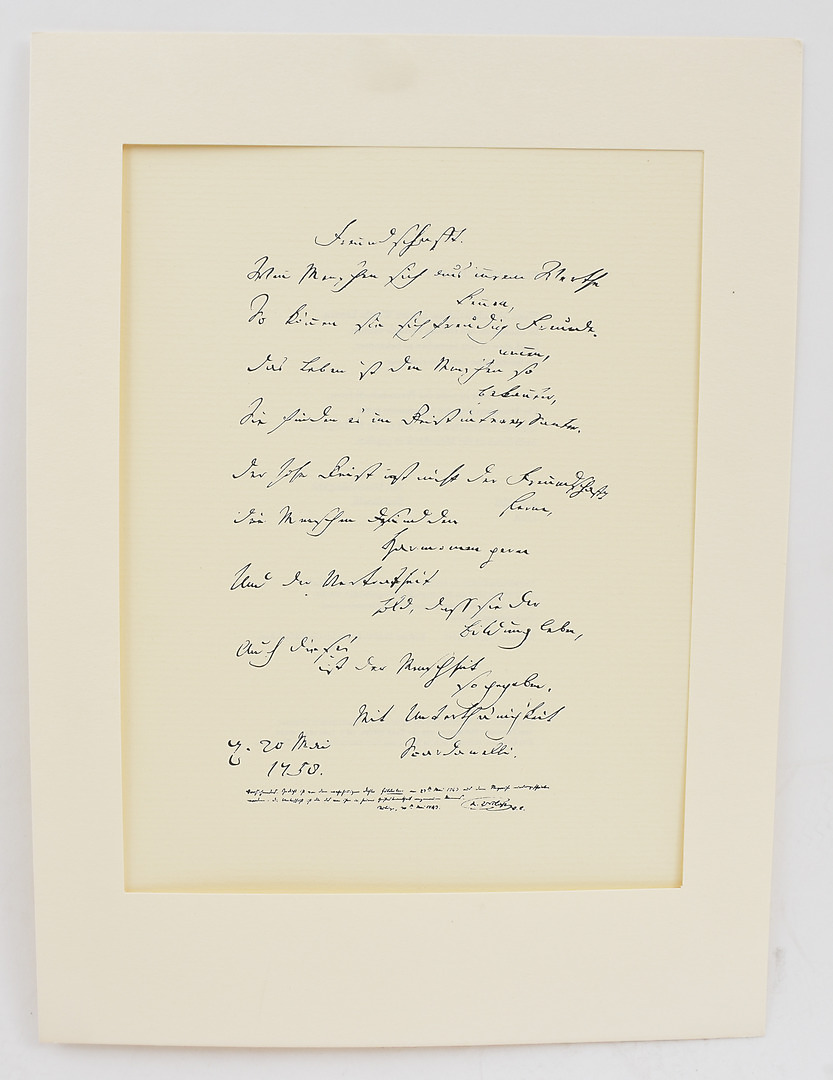 Freundschafft.
Wenn Menschen sich aus innrem Werthe
kennen,
So können sie sich freudig Freunde
nennen,
Das Leben ist den Menschen so
bekannter,
Sie finden es im Geist interessanter.
Der hohe Geist ist nicht der Freundschafft
ferne,
Die Menschen sind den
Harmonien gerne
Und der Vertrautheit
hold, dass sie der
Bildung leben,
Auch dieses
ist der Menschheit
so gegeben.
Mit Unterthänigkeit
d. 20 Mai
Scardanelli.
1758.